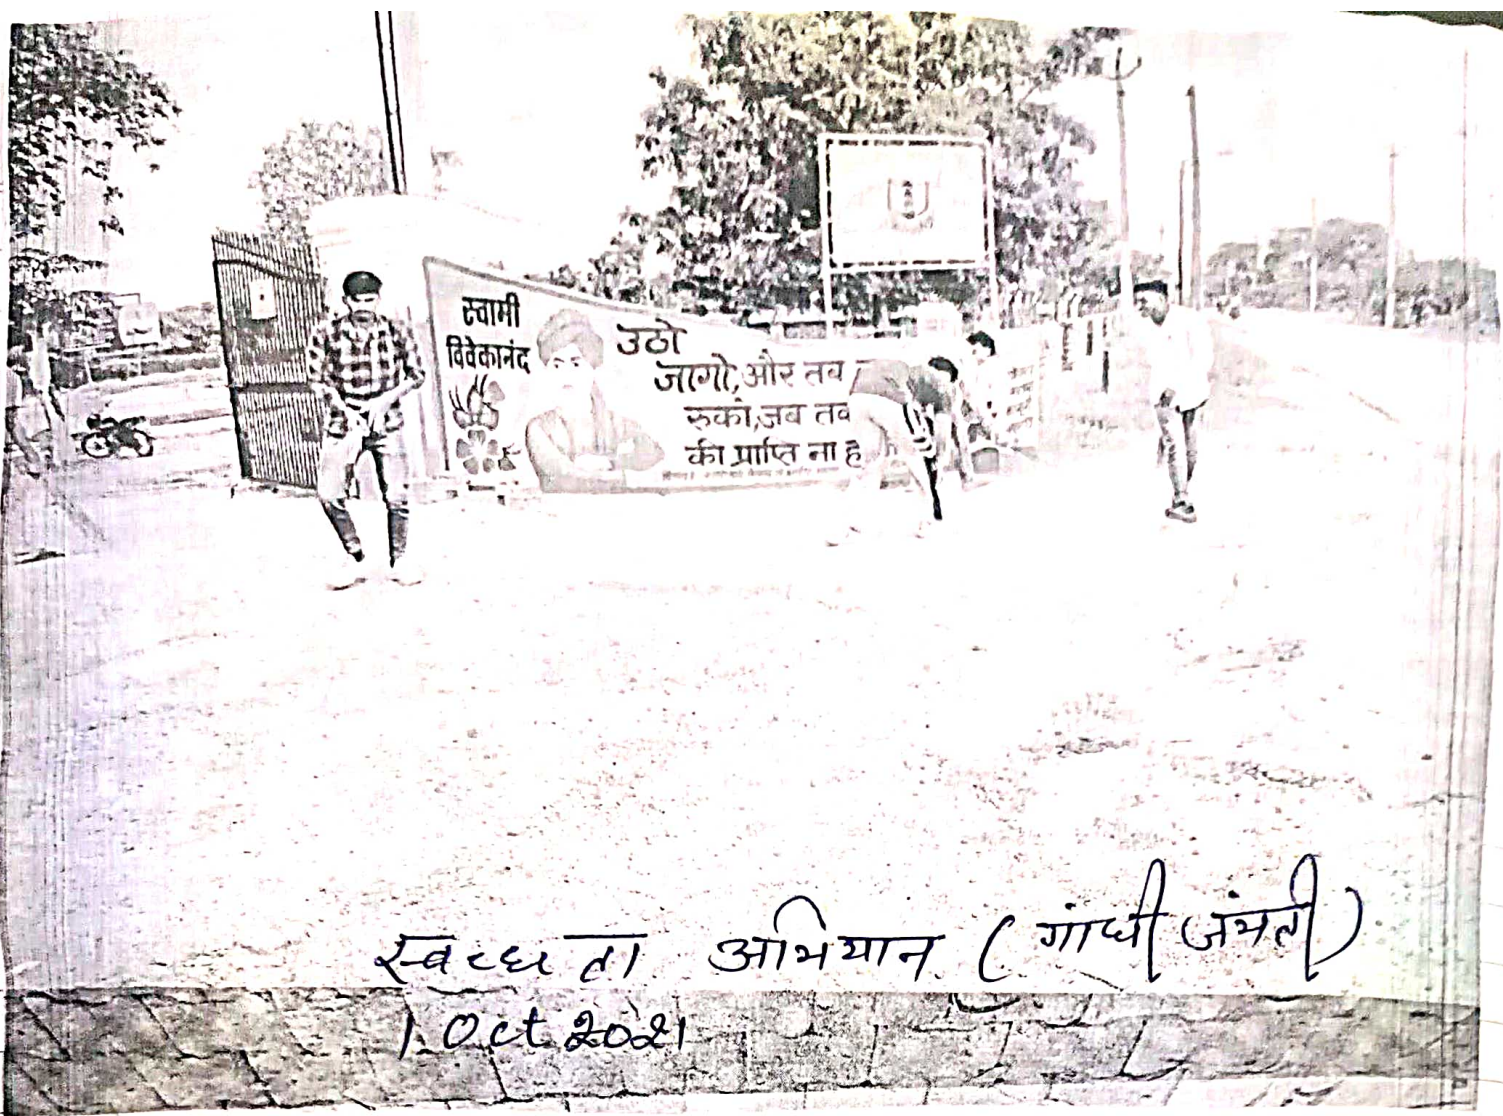 स्वामी
विवेकानंद
उठो
जागो, और तब
रुको, जब तक
की प्राप्ति ना ह
स्वच्छता अभियान (गांधी जंयती)
1 Oct 2021